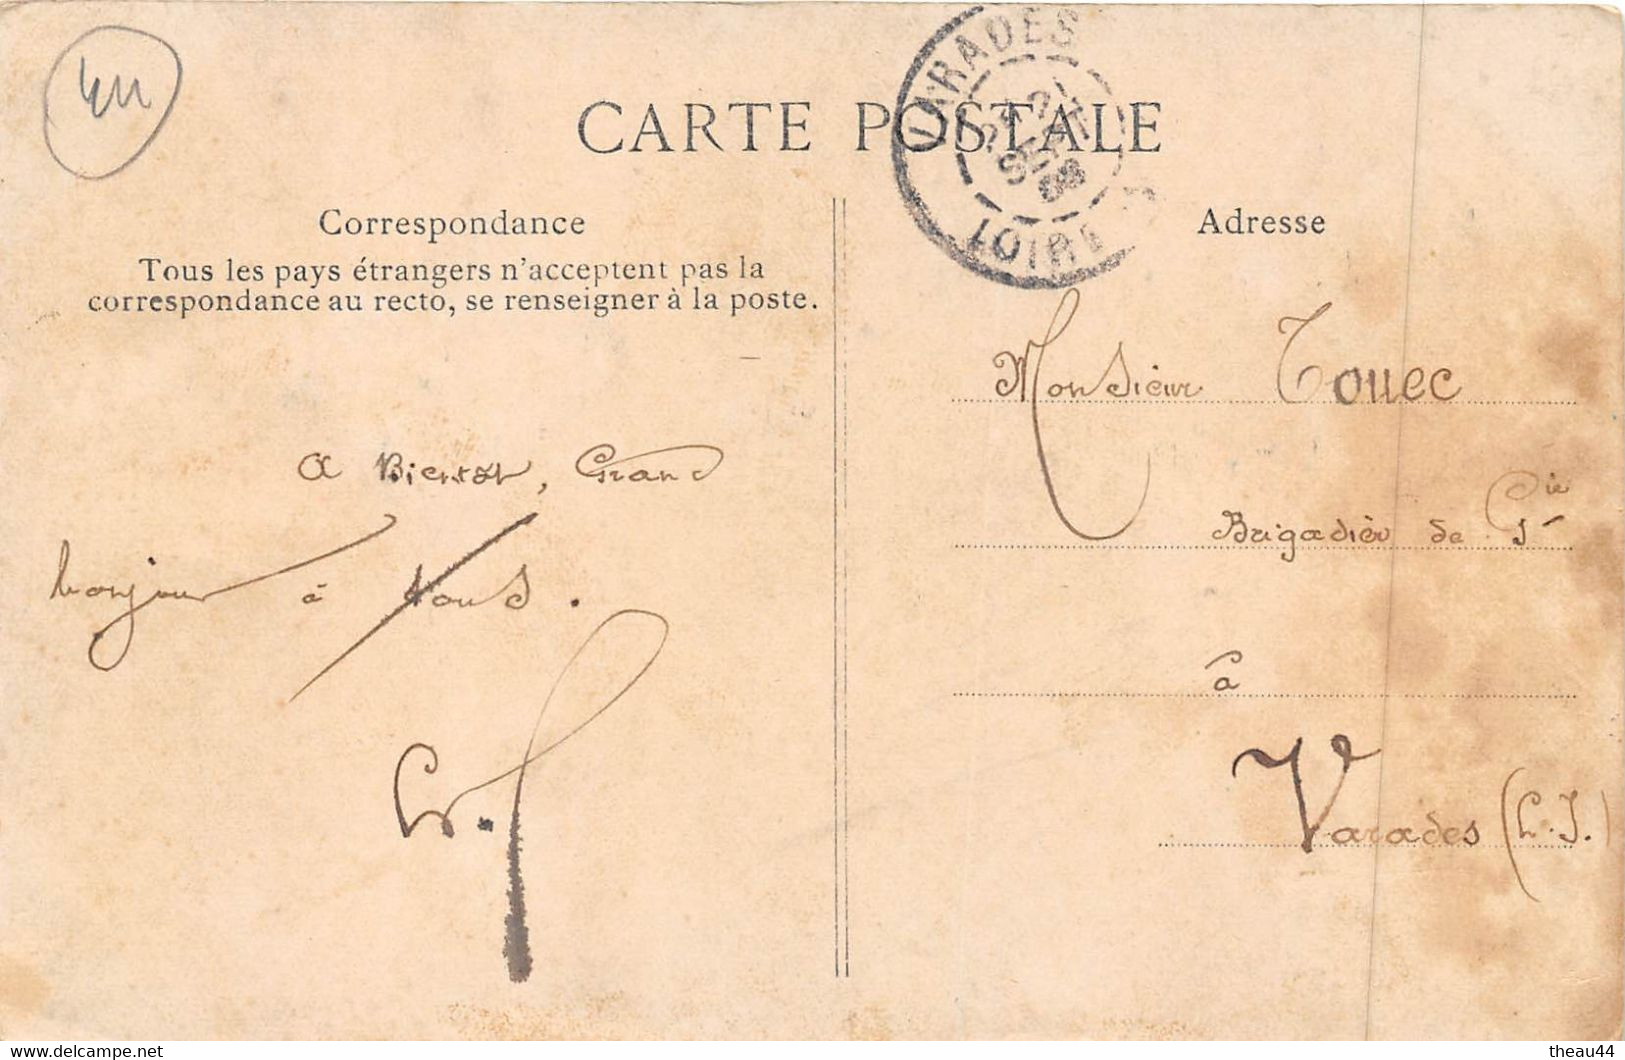 44
CARTE POSTALE
VARADES
SEPT
08
LOIRE
Correspondance
Tous les pays étrangers n'acceptent pas la
correspondance au recto, se renseigner à la poste.
A Bientôt, Grand
bonjour à tous.
Adresse
Monsieur Touec
Brigadier de Gie
à
Varades (L. I.)
theau44